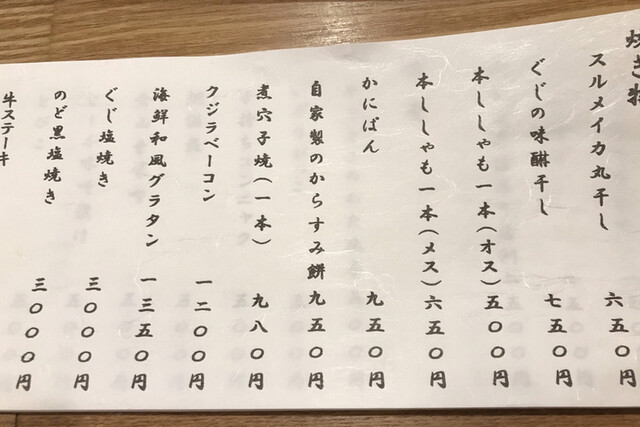 焼き物
スルメイカ丸干し 六五〇円
ぐじの味醂干し 七五〇円
本ししゃも一本(オス) 五〇〇円
本ししゃも一本(メス) 六五〇円
かにぱん 九五〇円
自家製のからすみ餅 九五〇円
煮穴子焼(一本) 九八〇円
クジラベーコン 一二〇〇円
海鮮和風グラタン 一三五〇円
ぐじ塩焼き 三〇〇〇円
のど黒塩焼き 三〇〇〇円
牛ステーキ